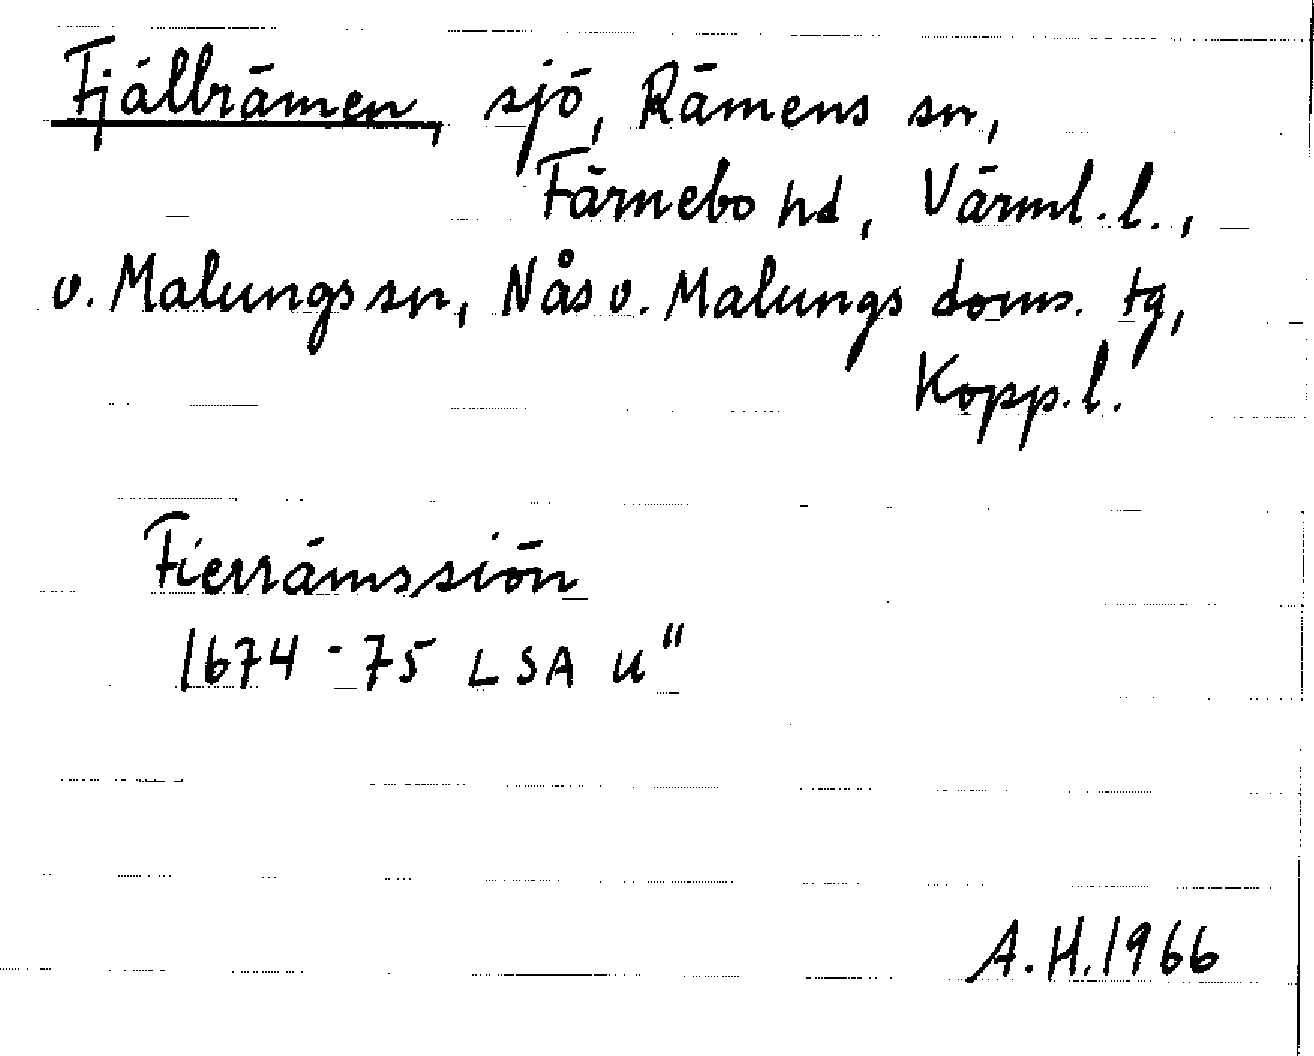 Fjällrämen, sjö, Rämens sn,
Färnebo hd, Värml. l.,
o. Malungs sn, Nås o. Malungs doms. tg,
Kopp. l.
Fierrämssiön
1674-75 LSA U"
A.H. 1966